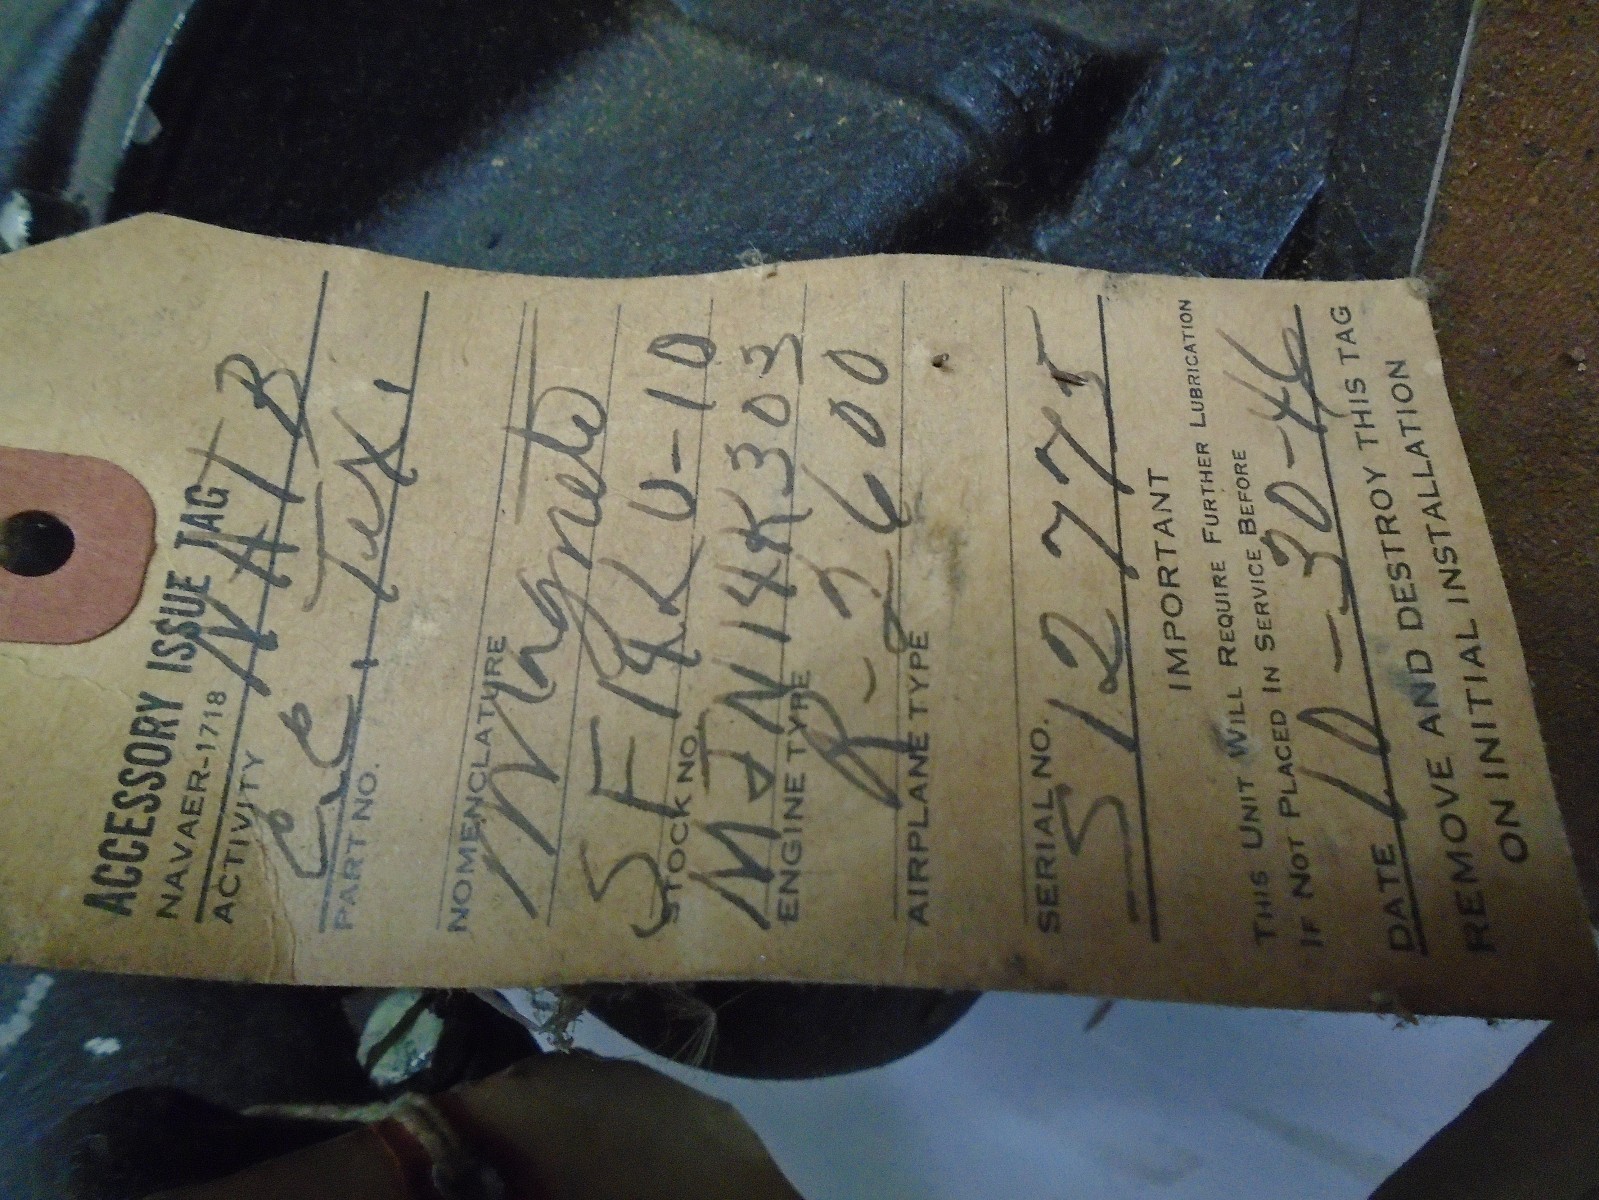 ACCESSORY ISSUE TAG
NAVAER-1718 NATB
ACTIVITY
C.C. Tex.
PART NO.
NOMENCLATURE
Magneto
SF14LU-10
STOCK NO.
MJN14K303
ENGINE TYPE
R-2600
AIRPLANE TYPE
SERIAL NO.
512775
IMPORTANT
THIS UNIT WILL REQUIRE FURTHER LUBRICATION
IF NOT PLACED IN SERVICE BEFORE
DATE 10-30-46
REMOVE AND DESTROY THIS TAG
ON INITIAL INSTALLATION